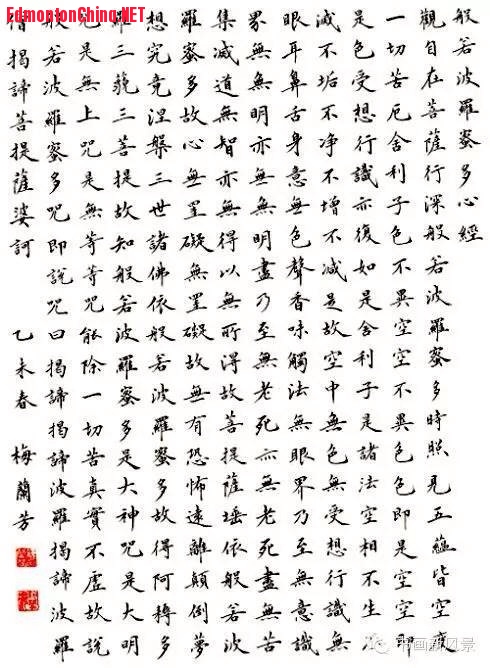 EdmontonChina.NET
般若波羅蜜多心經
觀自在菩薩行深般若波羅蜜多時照見五蘊皆空度
一切苦厄舍利子色不異空空不異色色即是空空即
是色受想行識亦復如是舍利子是諸法空相不生不
滅不垢不净不增不減是故空中無色無受想行識無
眼耳鼻舌身意無色聲香味觸法無眼界乃至無意識
界無無明亦無無明盡乃至無老死亦無老死盡無苦
集滅道無智亦無得以無所得故菩提薩埵依般若波
羅蜜多故心無罣礙無罣礙故無有恐怖遠離顛倒夢
想究竟涅槃三世諸佛依般若波羅蜜多故得阿耨多
羅三藐三菩提故知般若波羅蜜多是大神咒是大明
咒是無上咒是無等等咒能除一切苦真實不虛故說
般若波羅蜜多咒即說咒曰揭諦揭諦波羅揭諦波羅
僧揭諦菩提薩婆訶 乙未春 梅蘭芳
书画新风景